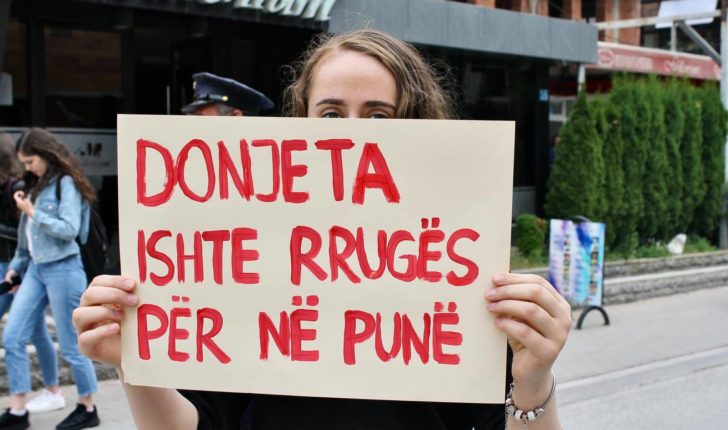 DONJETA
ISHTE RRUGËS
PËR NË PUNË